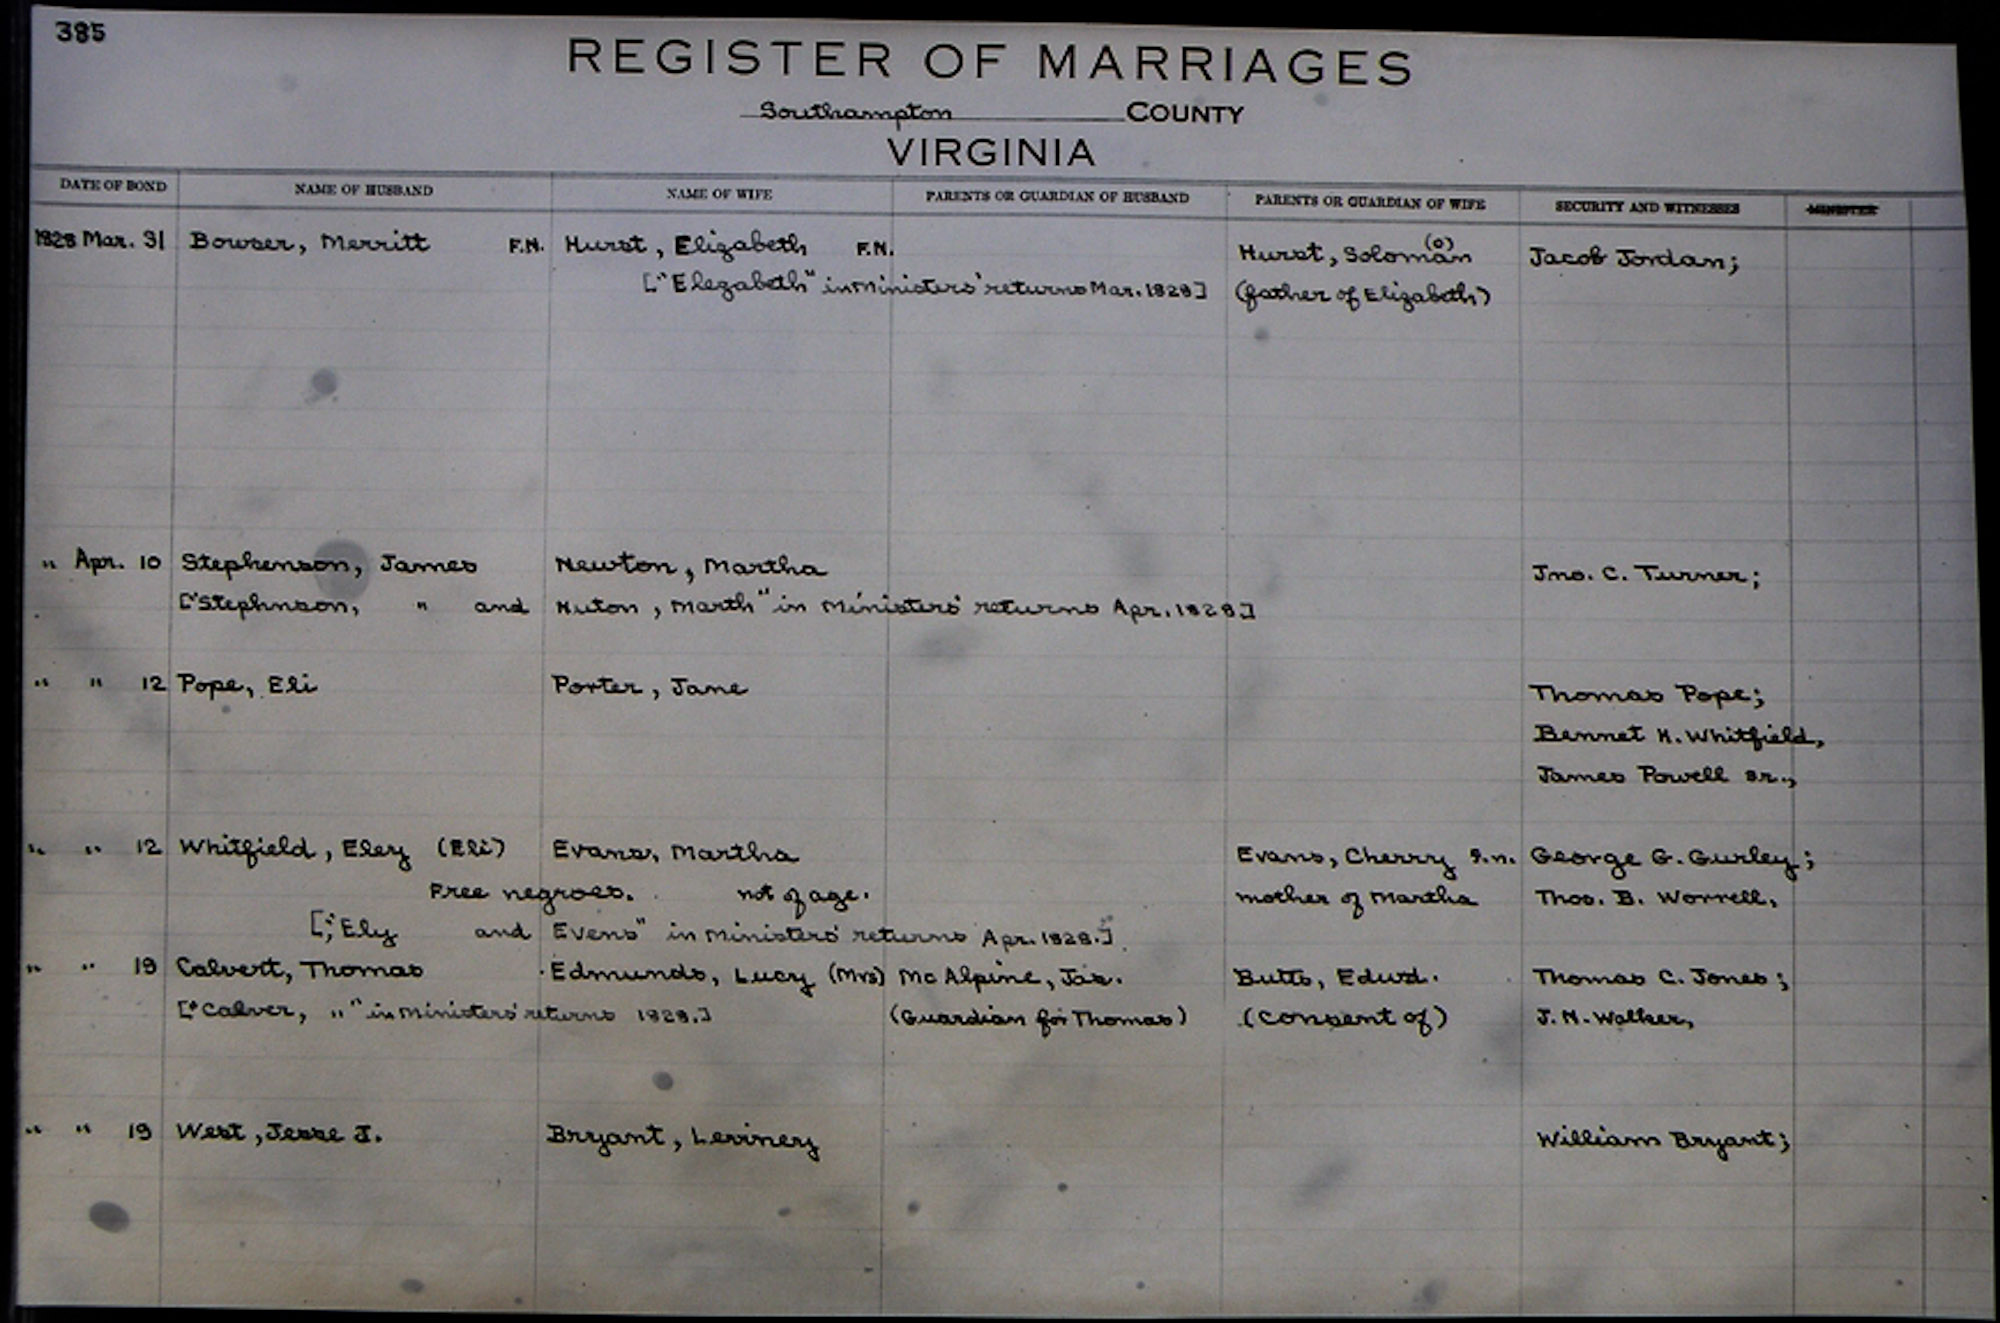 385
REGISTER OF MARRIAGES
Southampton COUNTY
VIRGINIA
DATE OF BOND NAME OF HUSBAND NAME OF WIFE PARENTS OR GUARDIAN OF HUSBAND PARENTS OR GUARDIAN OF WIFE SECURITY AND WITNESSES MINISTER
1828 Mar. 31 Bowser, Merritt F.N. Hurst, Elizabeth F.N. Hurst, Soloman (o) Jacob Jordan;
["Elezabeth" in Ministers' returns Mar. 1828] (father of Elizabeth)
" Apr. 10 Stephenson, James Newton, Martha Jno. C. Turner;
["Stephnson, " and Nuton, Marth" in Ministers' returns Apr. 1828]
" " 12 Pope, Eli Porter, Jane Thomas Pope;
Bennet H. Whitfield,
James Powell sr.,
" " 12 Whitfield, Eley (Eli) Evans, Martha Evans, Cherry F.n. George G. Gurley;
Free negroes. not of age. mother of Martha Thos. B. Worrell,
["Ely and Evens" in Ministers' returns Apr. 1828.]
" " 19 Calvert, Thomas Edmunds, Lucy (Mrs) McAlpine, Jas. Butts, Edwd. Thomas C. Jones;
["Calver, " " in Ministers' returns 1828.] (Guardian for Thomas) (consent of) J. N. Walker,
" " 19 West, Jesse J. Bryant, Leviney William Bryant;